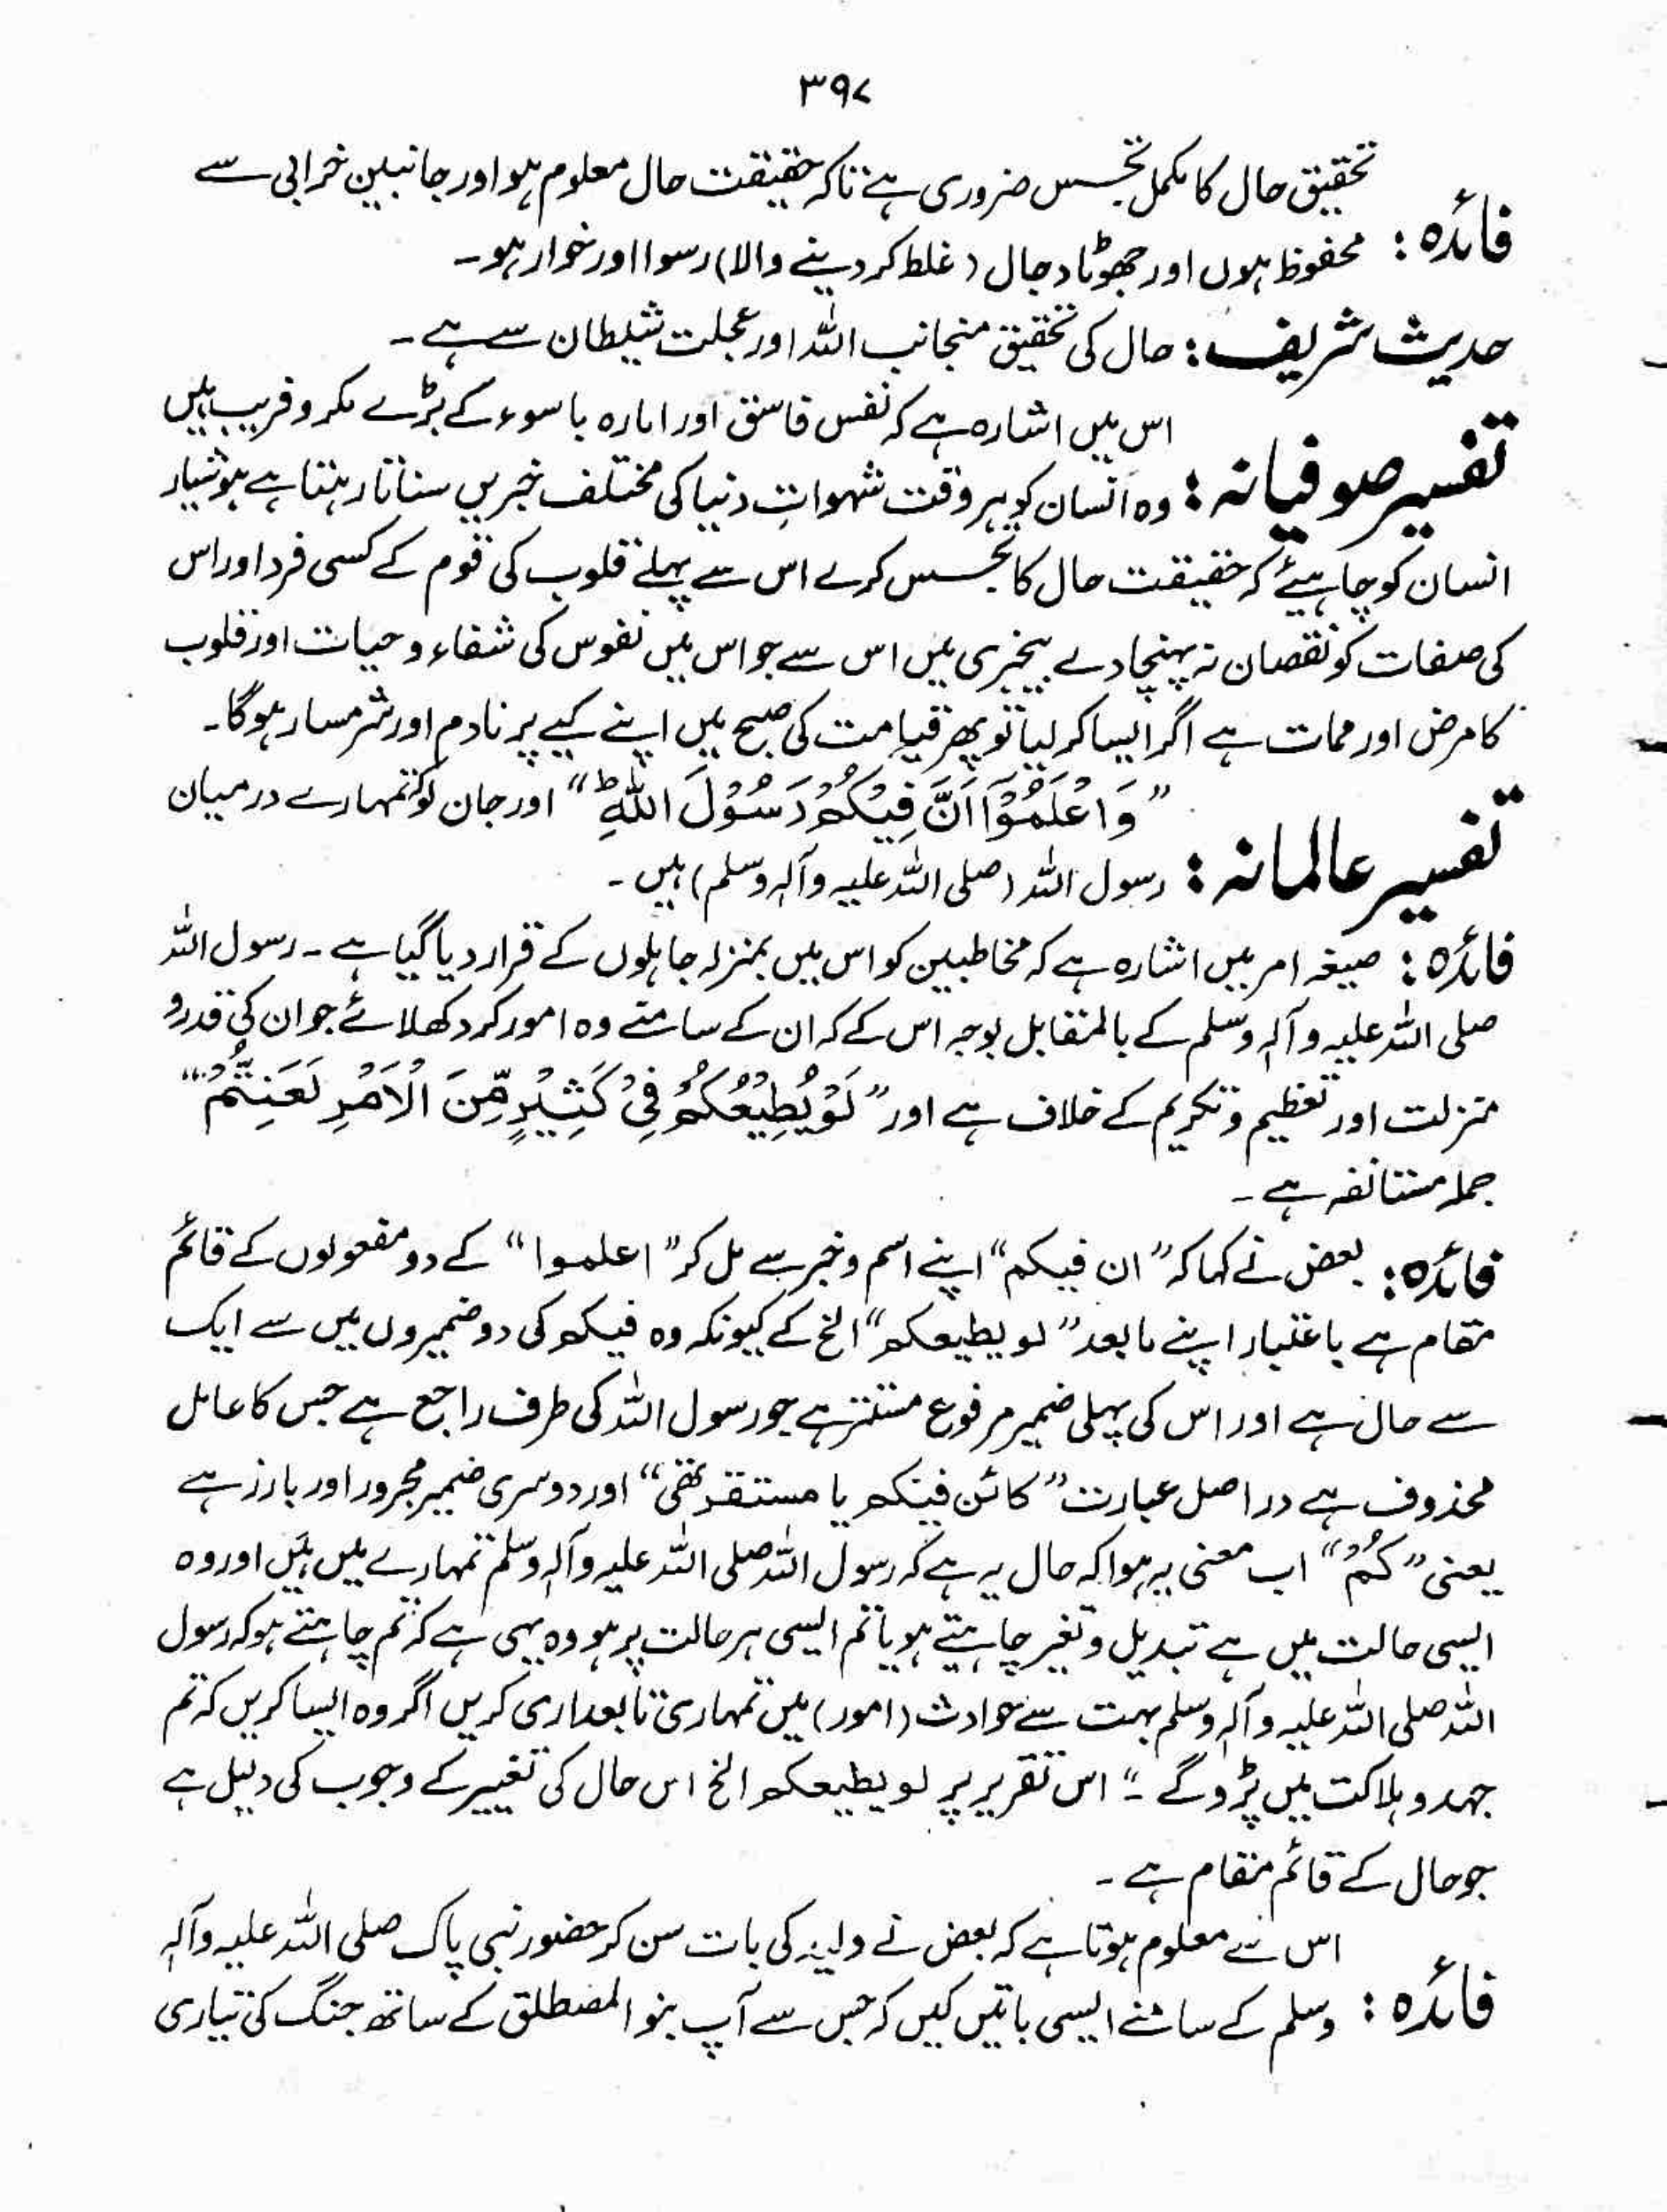 ۳۹۷
تحقیق حال کا مکمل تجسس ضروری ہے تاکہ حقیقت حال معلوم ہو اور جانبین خرابی سے
فائدہ: محفوظ ہوں اور جھوٹا دجال (غلط کر دینے والا) رسوا اور خوار ہو۔
حدیث شریف: حال کی تحقیق منجانب اللہ اور عجلت شیطان سے ہے۔
اس میں اشارہ ہے کہ نفس فاسق اور امارہ باسوء کے بڑے مکر و فریب ہیں
تفسیر صوفیانہ: وہ انسان کو ہر وقت شہوات دنیا کی مختلف خبریں سناتا رہتا ہے ہوشیار
انسان کو چاہیئے کہ حقیقت حال کا تجسس کرے اس سے پہلے قلوب کی قوم کے کسی فرد اور اس
کی صفات کو نقصان نہ پہنچا دے بیخبری میں اس سے جو اس میں نفوس کی شفاء و حیات اور قلوب
کا مرض اور ممات ہے اگر ایسا کر لیا تو پھر قیامت کی صبح میں اپنے کیے پر نادم اور شرمسار ہوگا۔
”وَاعْلَمُوْٓا اَنَّ فِيْكُمْ رَسُوْلَ اللّٰهِ ؕ“ اور جان لو کہ تمہارے درمیان
تفسیر عالمانہ: رسول اللہ (صلی اللہ علیہ وآلہ وسلم) ہیں۔
فائدہ: صیغہ امر میں اشارہ ہے کہ مخاطبین کو اس میں بمنزلہ جاہلوں کے قرار دیا گیا ہے۔ رسول اللہ
صلی اللہ علیہ وآلہ وسلم کے بالمقابل بوجہ اس کے کہ ان کے سامنے وہ امور کر دکھلائے جو ان کی قدر و
منزلت اور تعظیم و تکریم کے خلاف ہے اور ”لَوْ يُطِيْعُكُمْ فِيْ كَثِيْرٍ مِّنَ الْاَمْرِ لَعَنِتُّمْ“
جملہ مستانفہ ہے۔
فائدہ: بعض نے کہا کہ ”ان فیکم“ اپنے اسم و خبر سے مل کر ”اعلموا“ کے دو مفعولوں کے قائم
مقام ہے باعتبار اپنے مابعد ”لو یطیعکم“ الخ کے کیونکہ وہ فیکم کی دو ضمیروں میں سے ایک
سے حال ہے اور اس کی پہلی ضمیر مرفوع مستتر ہے جو رسول اللہ کی طرف راجع ہے جس کا عامل
محذوف ہے دراصل عبارت ”کائن فیکم یا مستقر تھی“ اور دوسری ضمیر مجرور اور بارز ہے
یعنی ”كُمْ“ اب معنی یہ ہوا کہ حال یہ ہے کہ رسول اللہ صلی اللہ علیہ وآلہ وسلم تمہارے میں ہیں اور وہ
ایسی حالت میں ہے تبدیل و تغیر چاہتے ہو یا تم ایسی ہر حالت پر ہو وہ یہی ہے کہ تم چاہتے ہو کہ رسول
اللہ صلی اللہ علیہ وآلہ وسلم بہت سے حوادث (امور) میں تمہاری تابعداری کریں اگر وہ ایسا کریں کہ تم
جہد و ہلاکت میں پڑو گے۔“ اس تقریر پر لو یطیعکم الخ اس حال کی تغییر کے وجوب کی دلیل ہے
جو حال کے قائم مقام ہے۔
اس سے معلوم ہوتا ہے کہ بعض نے ولید کی بات سن کر حضور نبی پاک صلی اللہ علیہ وآلہ
فائدہ: وسلم کے سامنے ایسی باتیں کیں کہ جس سے آپ بنو المصطلق کے ساتھ جنگ کی تیاری